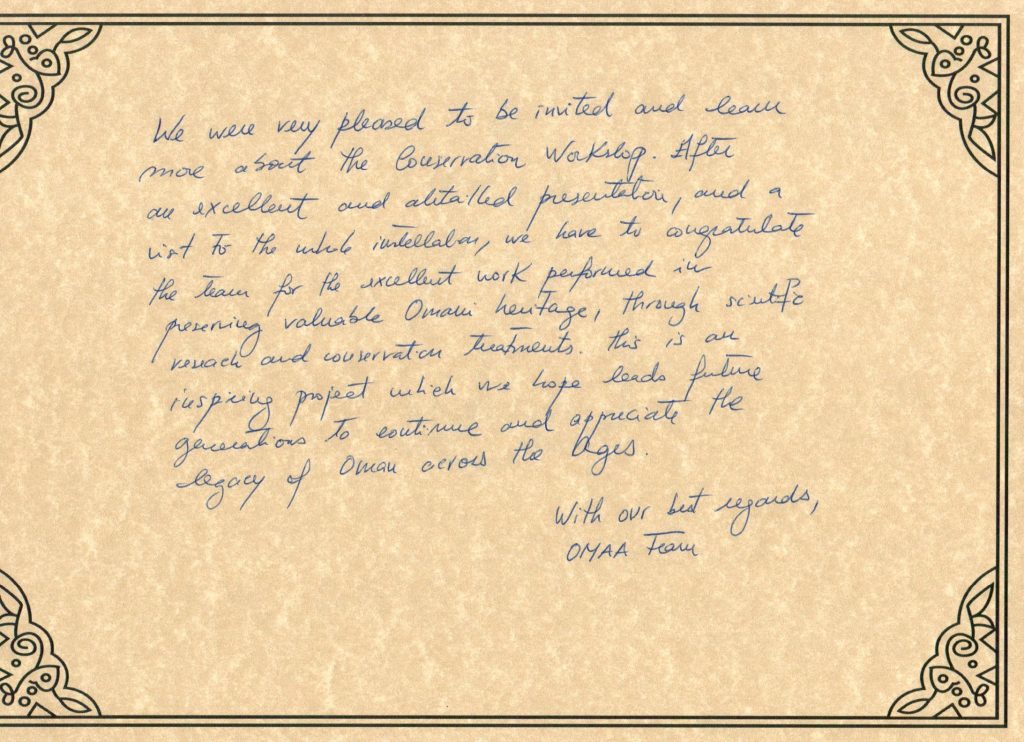 We were very pleased to be invited and learn
more about the Conservation Workshop. After
an excellent and detailled presentation, and a
visit to the whole installation, we have to congratulate
the team for the excellent work performed in
preserving valuable Omani heritage, through scientific
reseach and conservation treatments. This is an
inspiring project which we hope leads future
generations to continue and appreciate the
legacy of Oman across the Ages.
With our best regards,
OMAA Team